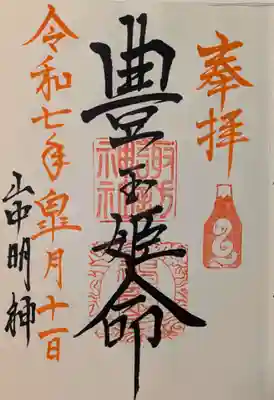 奉拝
豊玉姫命
令和七年皐月十一日
山中明神